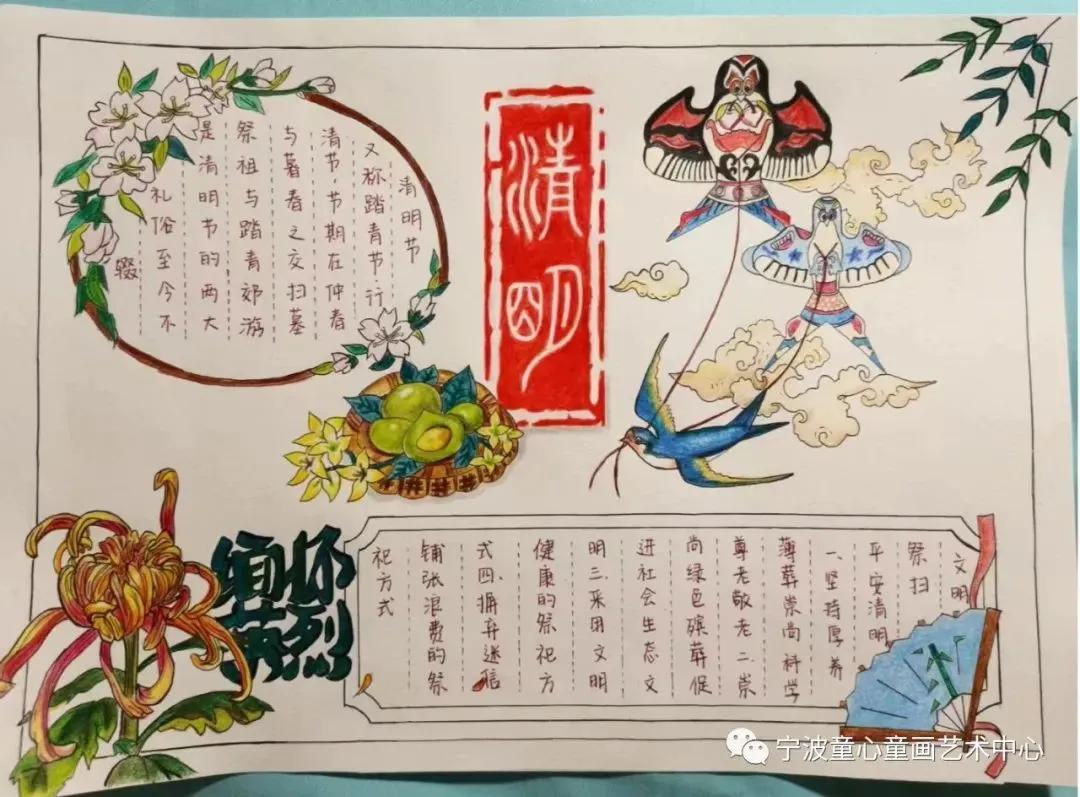 清明节
又称踏青节,行
清节节期在仲春
与暮春之交扫墓
祭祖与踏青郊游
是清明节的两大
礼俗至今不
辍
清明
缅怀
英烈
文明
祭扫
平安清明
一、坚持厚养
薄葬崇尚科学
尊老敬老二、崇
尚绿色殡葬促
进社会生态文
明三、采用文明
健康的祭祀方
式四、摒弃迷信
铺张浪费的祭
祀方式
宁波童心童画艺术中心